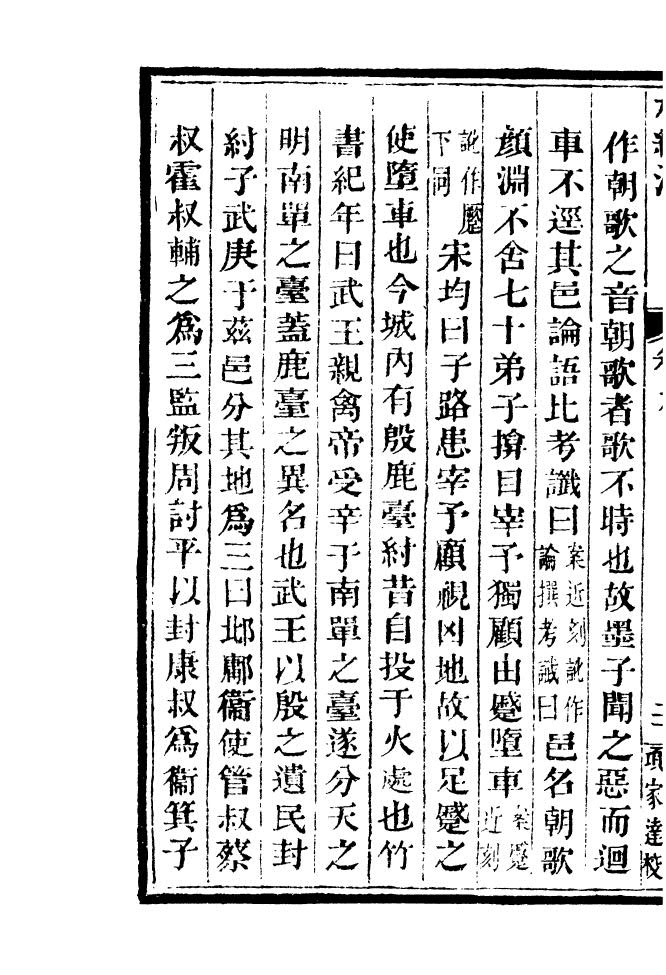 水經注 卷九 二 項家達校
作朝歌之音朝歌者歌不時也故墨子聞之惡而迴
車不逕其邑論語比考讖曰案近刻訛作論撰考讖曰邑名朝歌
顏淵不舍七十弟子揜目宰予獨顧由蹙墮車案蹙近刻
訛作蹷下同宋均曰子路患宰予顧視凶地故以足蹙之
使墮車也今城內有殷鹿臺紂昔自投于火處也竹
書紀年曰武王親禽帝受辛于南單之臺遂分天之
明南單之臺蓋鹿臺之異名也武王以殷之遺民封
紂子武庚于茲邑分其地爲三曰邶鄘衞使管叔蔡
叔霍叔輔之爲三監叛周討平以封康叔爲衞箕子